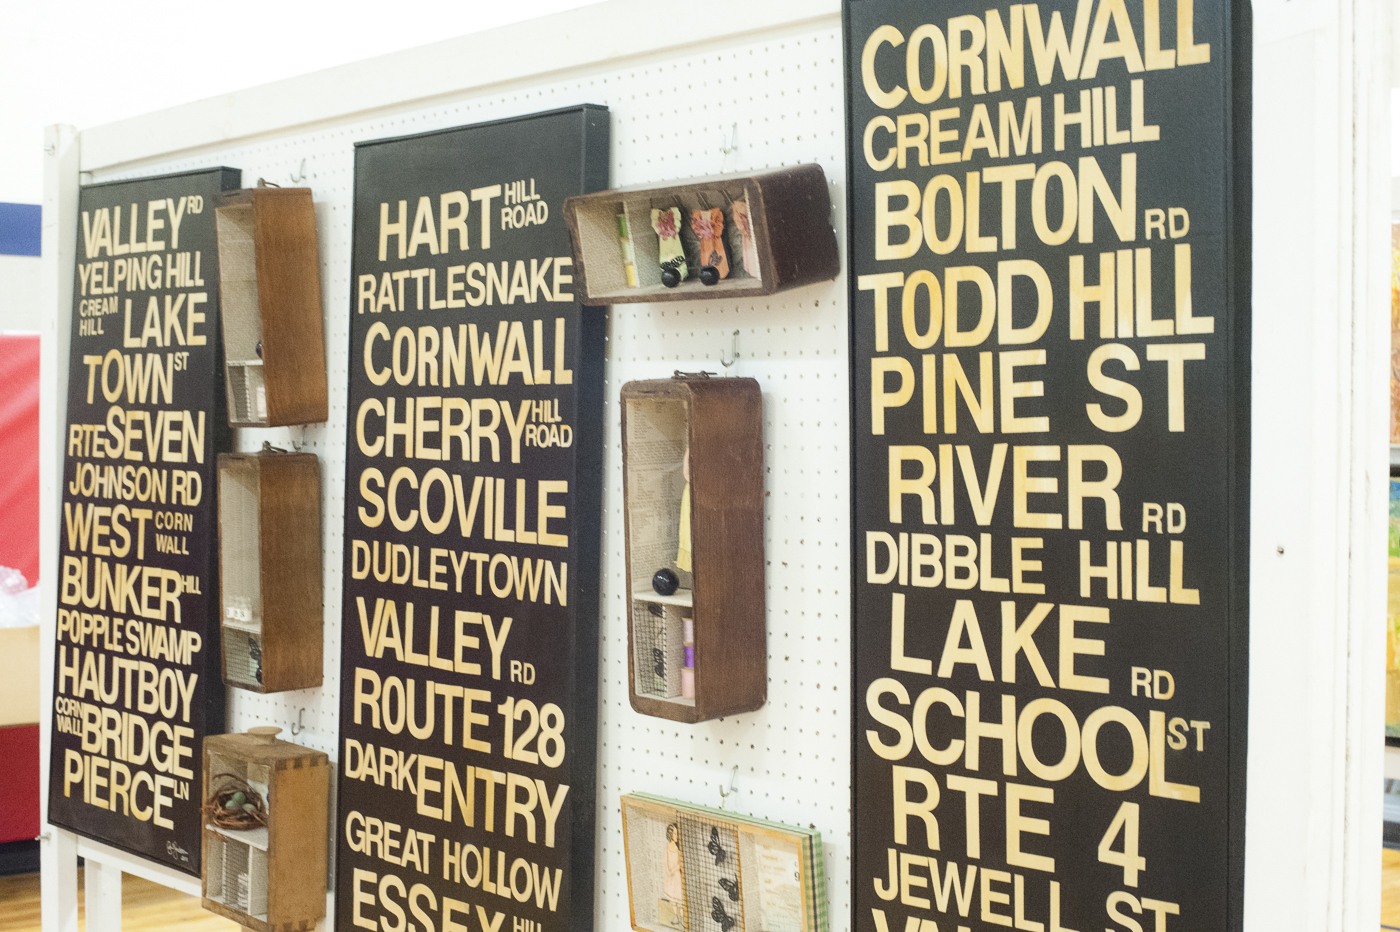 VALLEY RD
YELPING HILL
CREAM HILL LAKE
TOWN ST
RTE SEVEN
JOHNSON RD
WEST CORN WALL
BUNKER HILL
POPPLE SWAMP
HAUTBOY
CORN WALL BRIDGE
PIERCE LN
HART HILL ROAD
RATTLESNAKE
CORNWALL
CHERRY HILL ROAD
SCOVILLE
DUDLEYTOWN
VALLEY RD
ROUTE 128
DARK ENTRY
GREAT HOLLOW
ESSEX HILL
CORNWALL
CREAM HILL
BOLTON RD
TODD HILL
PINE ST
RIVER RD
DIBBLE HILL
LAKE RD
SCHOOL ST
RTE 4
JEWELL ST